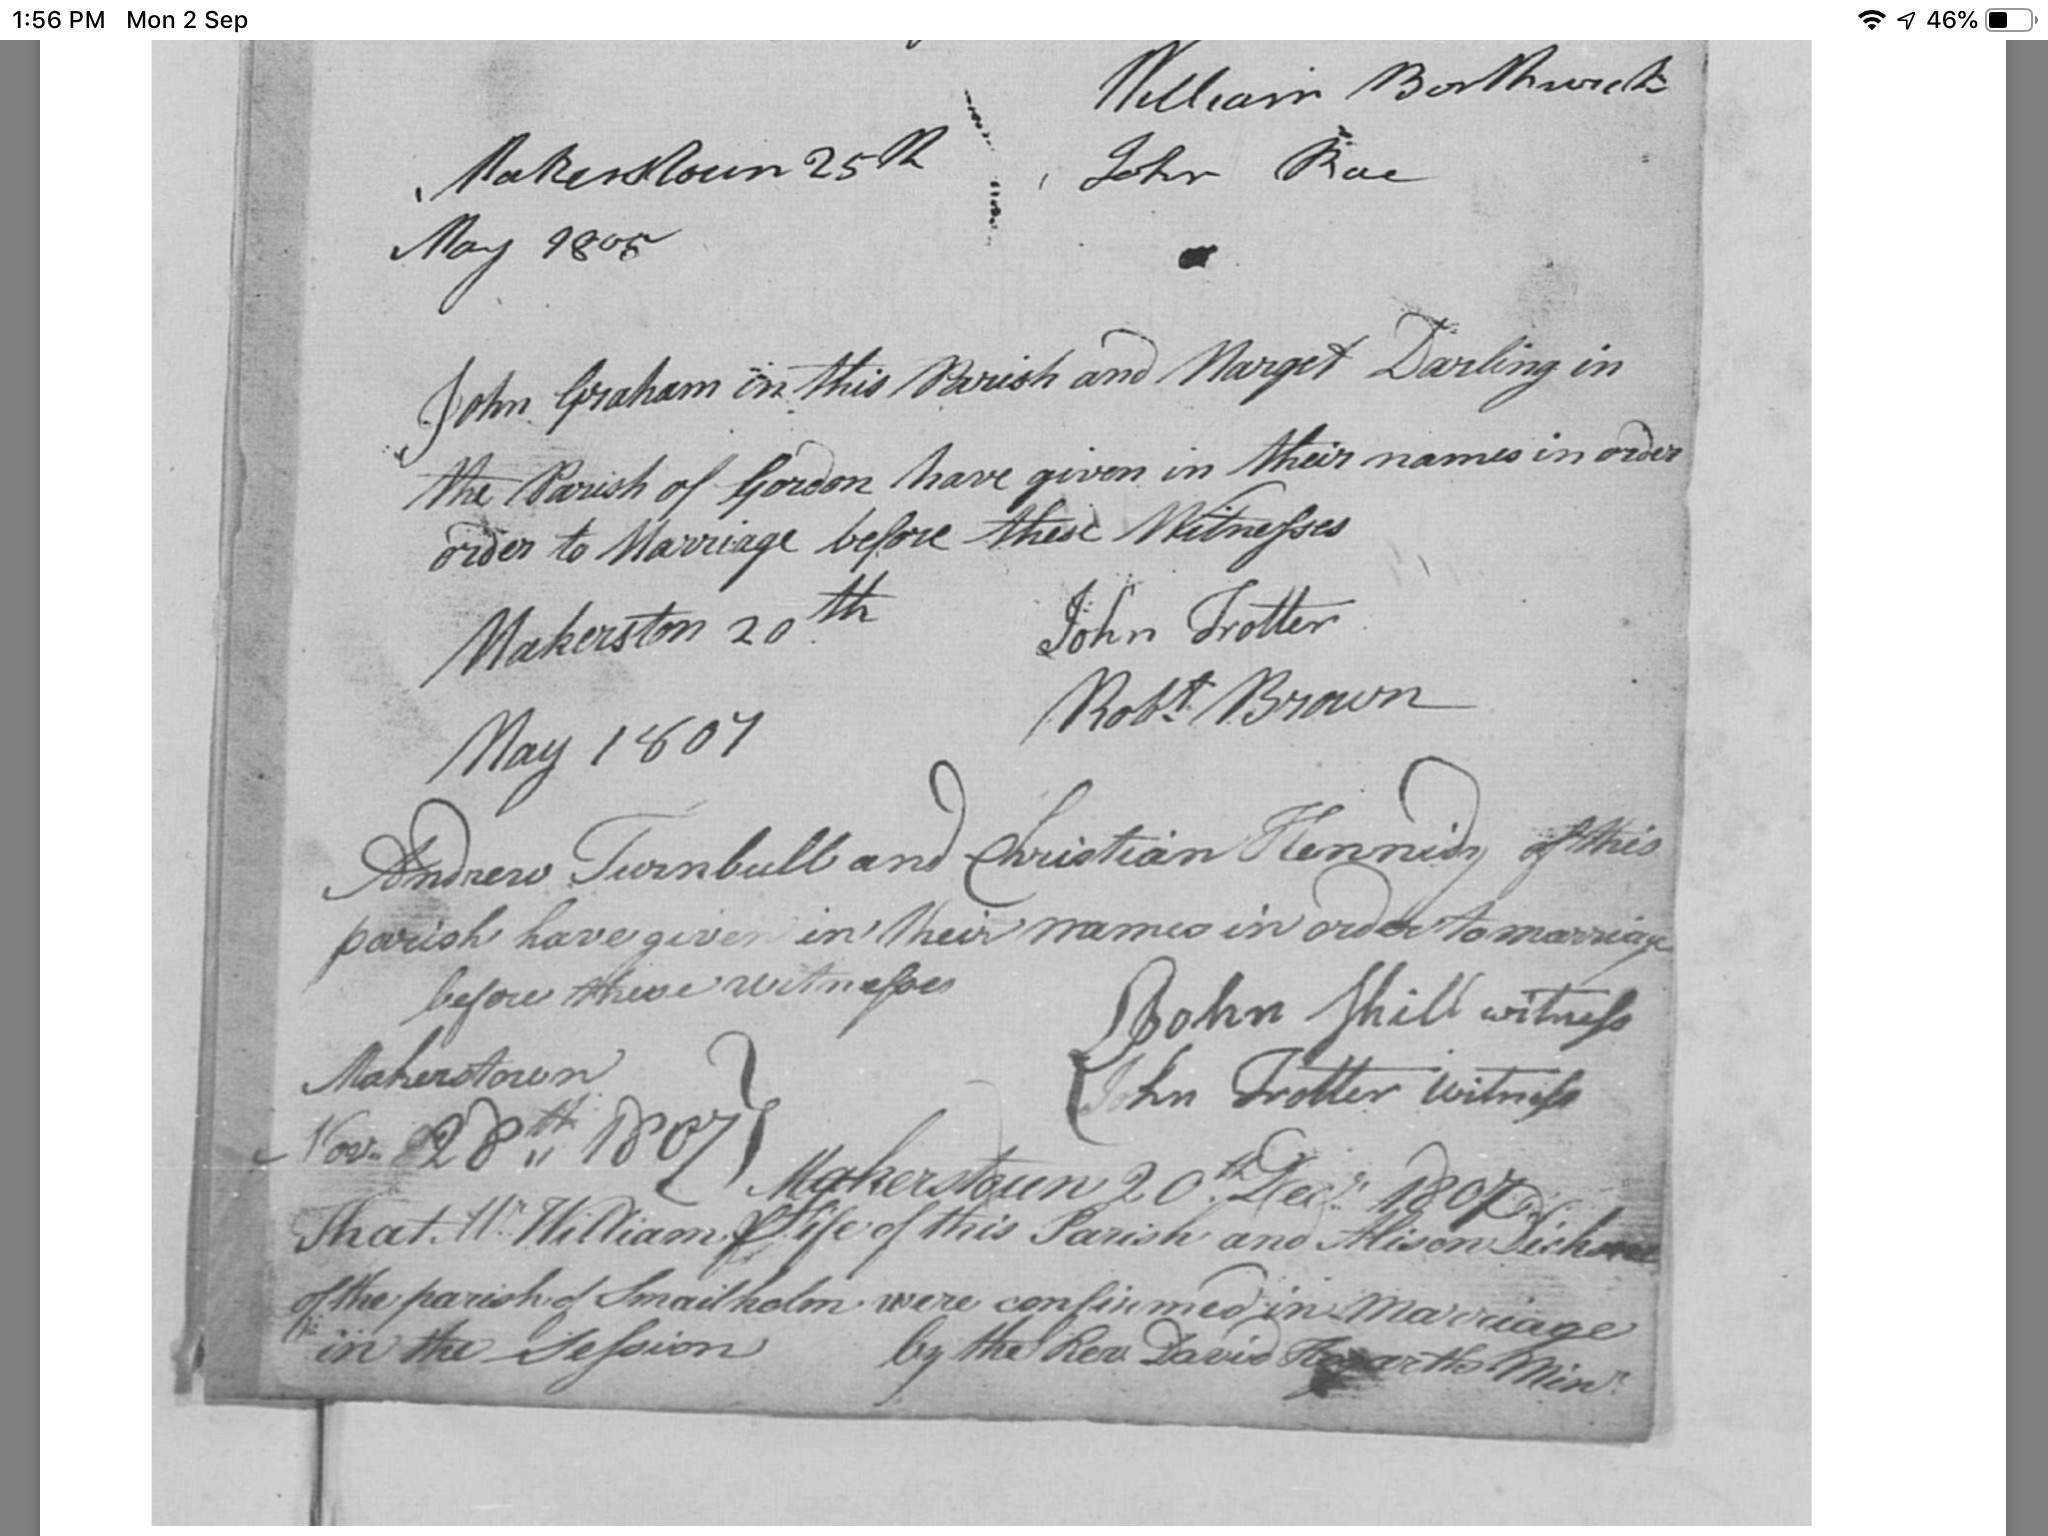 1:56 PM Mon 2 Sep
46%
William Borthwick
Makerstoun 25th
John Rae
May 1805
John Graham in this Parish and Marget Darling in
the Parish of Gordon have given in their names in order
order to Marriage before these Witnesses
Makerston 20th
John Trotter
May 1807
Robt Brown
Andrew Turnbull and Christian Kennidy of this
parish have given in their names in order to marriage
before these witnesses
John Shill witness
Makerstown
John Trotter witness
Nov. 28th 1807
Makerstoun 20th Decr. 1807
That Mr William Fife of this Parish and Alison
of the parish of Smailholm were confirmed in Marriage
in the Session by the Rev. David Minr.